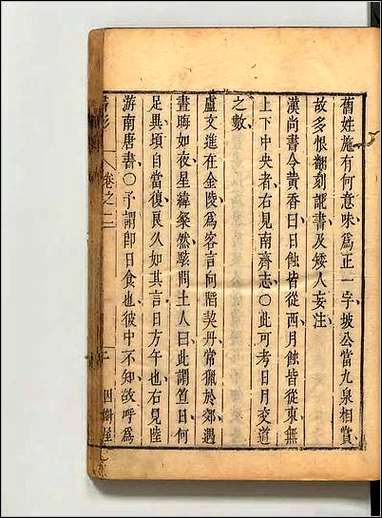 舊姓施有何意味爲正一字坡公當九泉相賞
故多恨翻刻訛書及矮人妄注
漢尚書令黄香曰日蝕皆從西月蝕皆從東無
上下中央者右見南齊志〇此可考日月交道
之數
盧文進在金陵爲客言向陷契丹常獵於郊遇
晝晦如夜星緯粲然駭問土人曰此謂笪日何
足異頃自當復良久如其言日方午也右見陸
游南唐書〇予謂即日食也彼中不知故呼爲
書影
卷之二
因樹屋